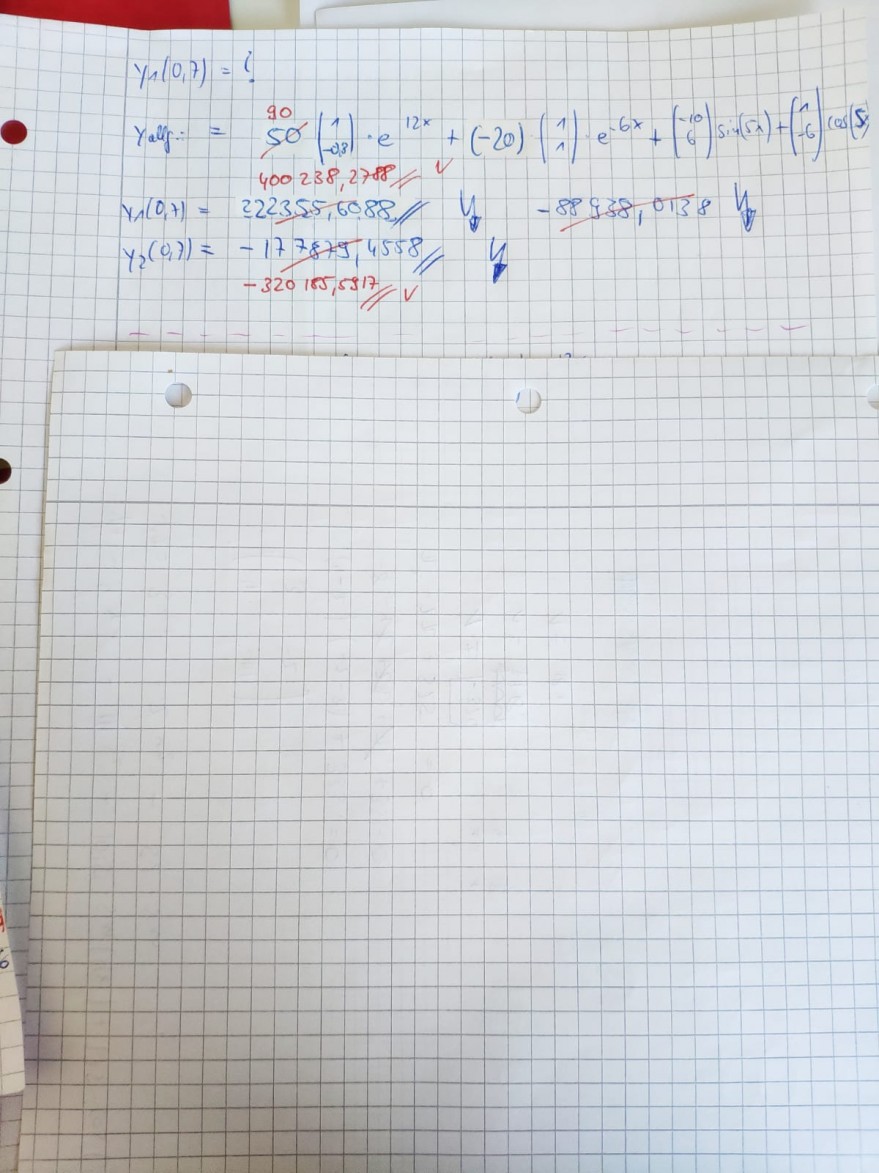 y₁(0,7) = ?
90
y allg.: = 50 (1 -0,8) · e^12x + (-20) · (1 1) · e^-6x + (-10 6) sin(5x) + (1 -6) cos(5x
400 238,2788 ✓
y₁(0,7) = 222355,6088 -88938,0138
y₂(0,7) = -177879,4558
-320 185,5917 ✓